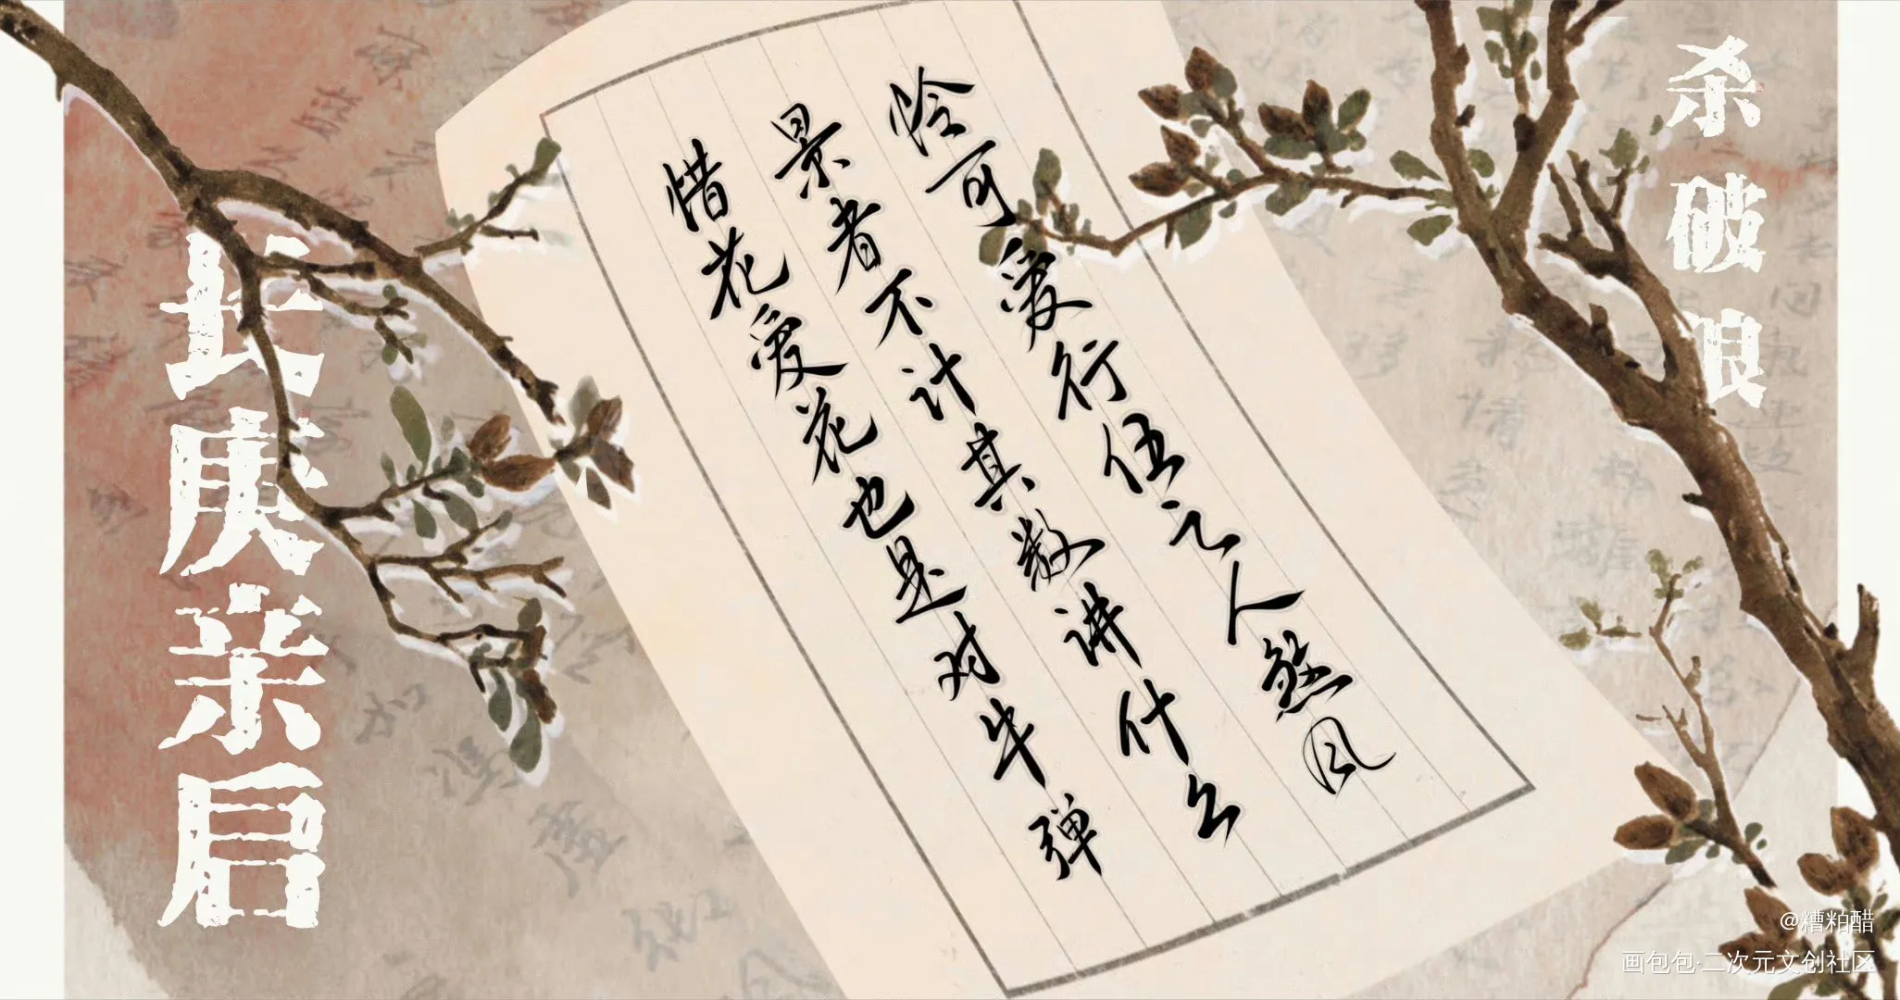 杀破狼
怜可爱行伍之人煞风
景者不计其数讲什么
惜花爱花也是对牛弹
长庚亲启
@糟粕醋
画包包·二次元文创社区